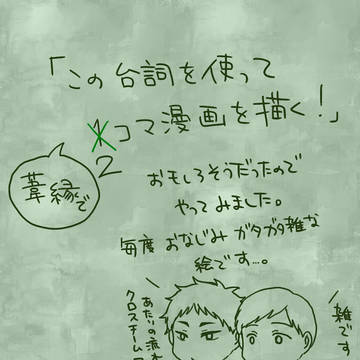 「この台詞を使って
1コマ漫画を描く!」
2
葦縁で
おもしろそうだったので
やってみました。
毎度おなじみガタガタ雑な
絵です…。
雑です
あたいの流木
クロスチーム